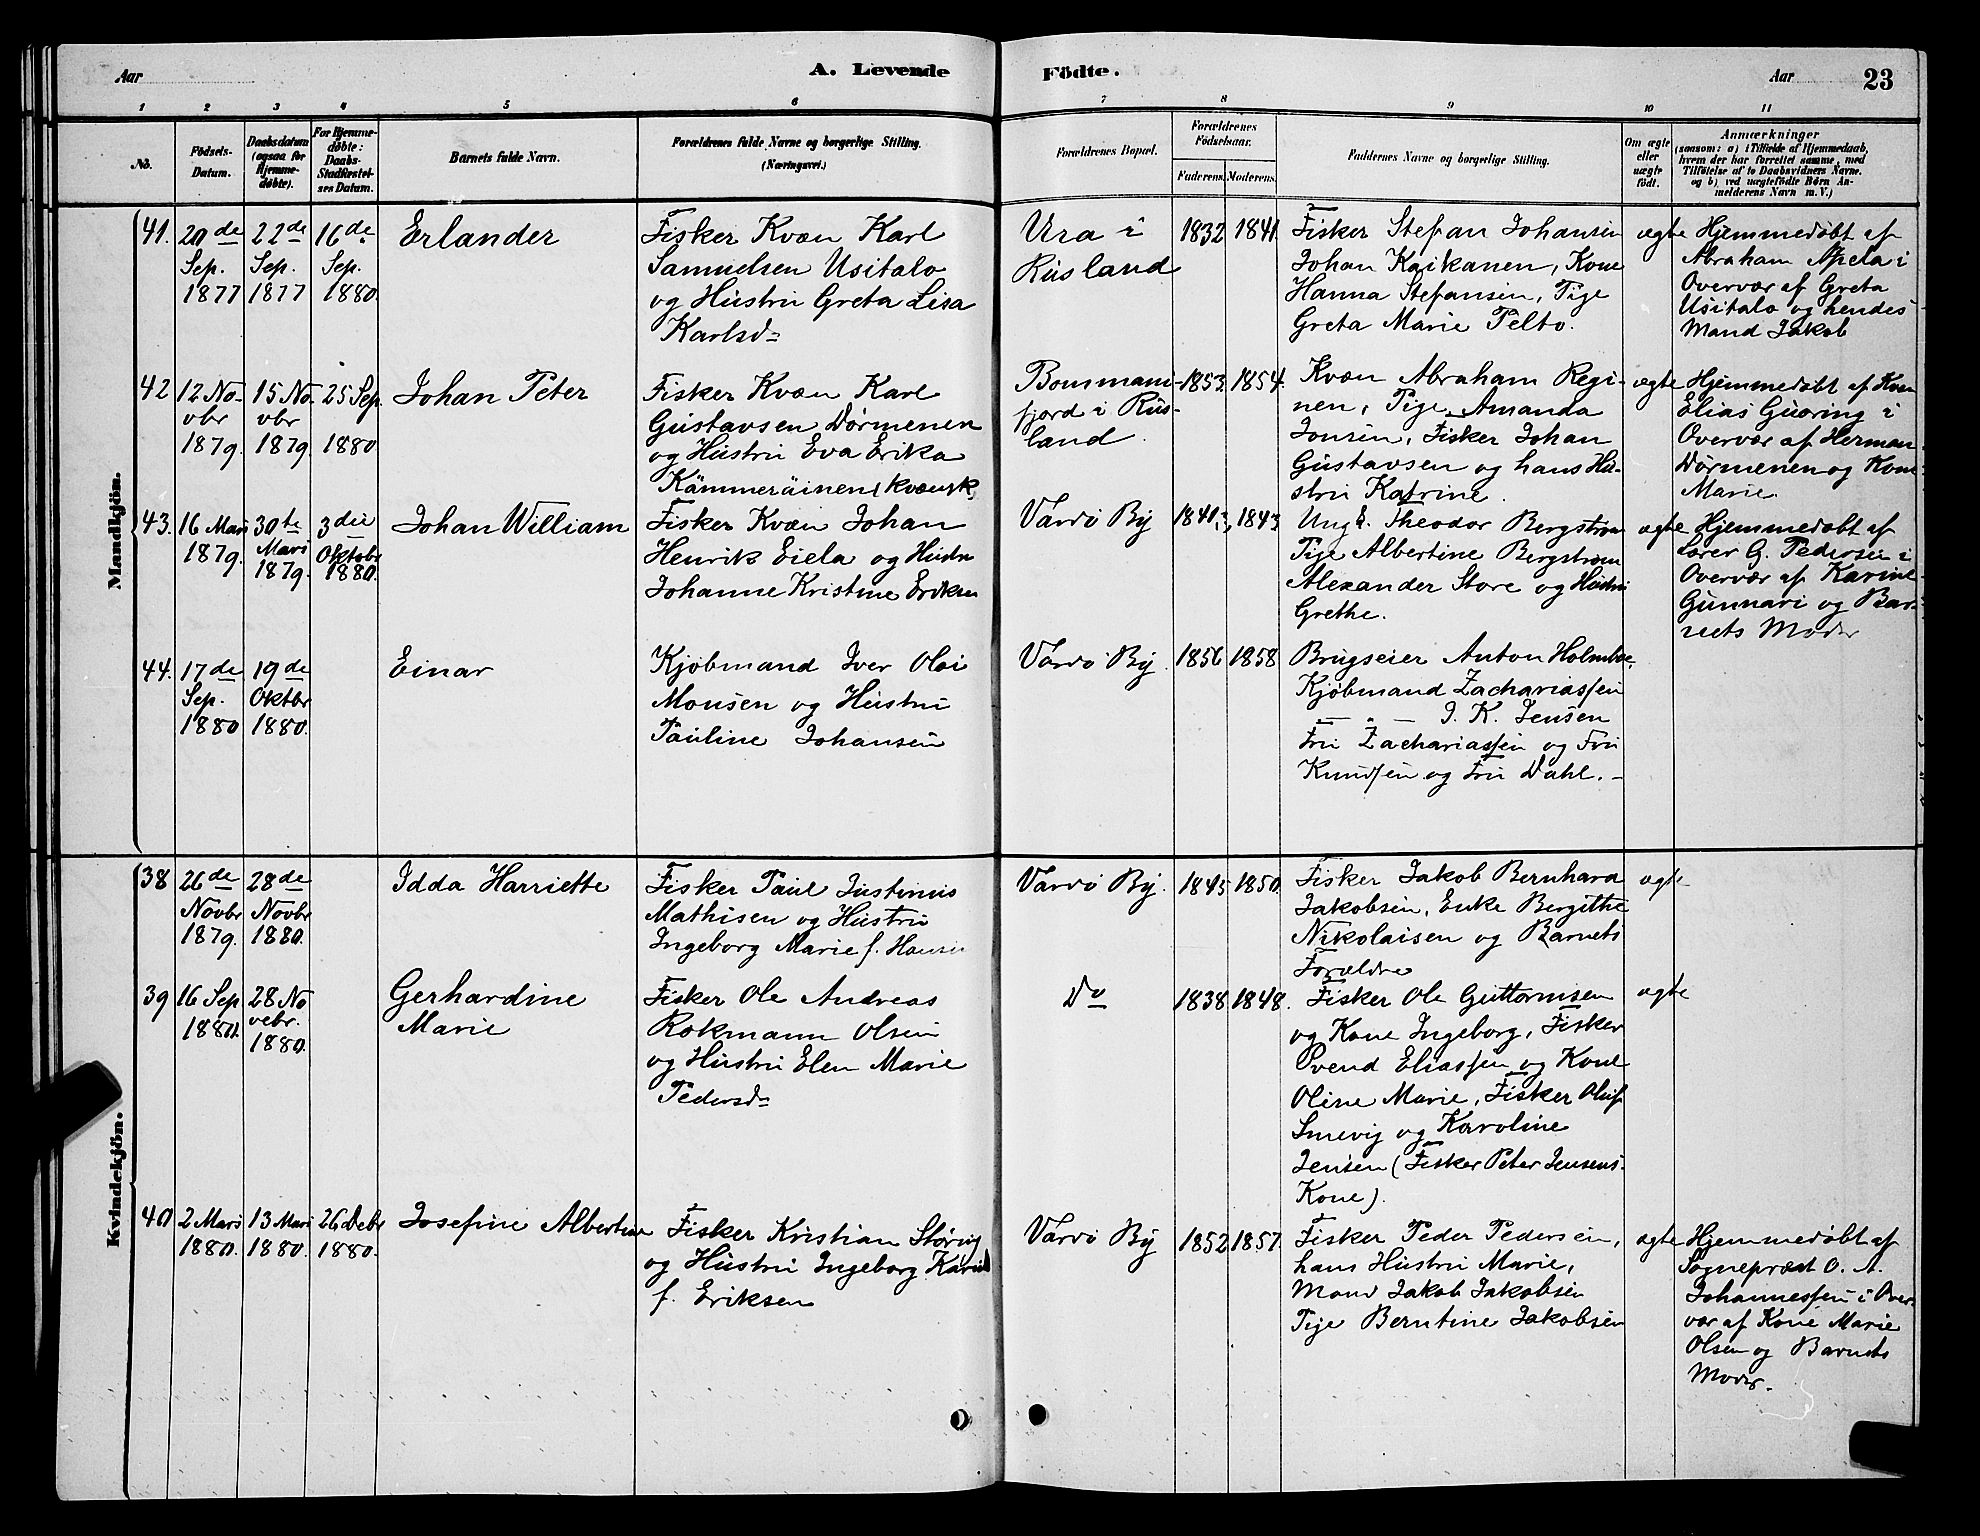 Aar
A. Levende
1 2 3 4 5 6
No.
Födsels-
Datum.
Daabsdatum
(ogsaa for
Hjemme-
döbte).
For Hjemme-
døbte:
Daabs-
Stadfæstel-
ses Datum.
Barnets fulde Navn.
Forældrenes fulde Navne og borgerlige Stilling.
(Næringsvei.)
Mandkjön.
41.
20de
Sep.
1877
22de
Sep.
1877
16de
Sep.
1880.
Erlander
Fisker Kvæn Karl
Samuelsen Usitalo
og Hustru Greta Lisa
Karlsd
42
12 No-
vbr
1879.
15 No-
vbr
1879.
25 Sep.
1880
Johan Peter
Fisker Kvæn Karl
Gustavsen Dørmenen
og Hustru Eva Erika
Kämmeräinen (kvænsk)
43.
16 Mars
1879.
30te
Mars
1879.
3die
Oktobr
1880.
Johan William
Fisker Kvæn Johan
Henrik Eiela og Hustru
Johanne Kristine Eriksen
44.
17de
Sep.
1880
19de
Oktbr
1880.
Einar
Kjøbmand Iver Olai
Monsen og Hustru
Pauline Johansen
Kvindekjön.
38
26de
Novbr
1879.
28de
Novbr
1880.
Idda Harriette
Fisker Paul Justinus
Mathisen og Hustru
Ingeborg Marie f. Hansen
39
16 Sep
1880.
28 No
vebr.
1880.
Gerhardine
Marie
Fisker Ole Andreas
Rokmann Olsen
og Hustru Elen Marie
Pedersd
40
2 Mars
1880.
13 Mars
1880.
26 Debr
1880.
Josefine Albertine
Fisker Kristian Størvig
og Hustru Ingeborg
f. Eriksen
Födte.
Aar
23
7 8 9 10 11
Forældrenes Bopæl.
Forældrenes
Födselsaar.
Faderens. Moderens.
Faddernes Navne og borgerlige Stilling.
Om ægte
eller
uægte
födt.
Anmærkninger
(saasom: a) i Tilfælde af Hjemmedaab,
hvem der har forrettet samme, med
Tilföielse af to Daabsvidners Navne.
og b) ved uægtefödte Börn An-
melderens Navn m. V.)
Ura i
Rusland
1832 1841.
Fisker Stefan Johansen
Johan Kaikanen, Kone
Hanna Stefansen, Pige
Greta Marie Pelto.
ægte
Hjemmedøbt af
Abraham Apela i
Overvær af Greta
Usitalo og hendes
Mand Jakob
Bommani-
fjord i Rus-
land.
1853 1854.
Kvæn Abraham Regi-
nen, Pige Amanda
Jonsen, Fisker Johan
Gustavsen og hans Hu-
stru Katrine.
ægte
Hjemmedøbt af Kvæn
Elias Guoring i
Overvær af Herman
Dørmenen og Kone
Marie.
Vardø By
1841 1843
Ungk. Theodor Bergstrøm
Pige Albertine Bergstrøm
Alexander Store og Hustru
Grethe.
ægte
Hjemmedøbt af
Lærer G. Pedersen i
Overvær af Karine
Gunnari og Bar-
nets Moder
Vardø By.
1856 1858
Brugseier Anton Holmboe,
Kjøbmand Zachariassen
— „ — J. K. Jensen
Fru Zachariassen og Fru
Knudsen og Fru Dahl.
Vardø By.
1845 1850.
Fisker Jakob Bernhard
Jakobsen, Enke Bergithe
Nikolaisen og Barnets
Forældre
ægte
Do
1838 1848.
Fisker Ole Guttormsen
og Kone Ingeborg, Fisker
Evend Eliassen og Kone
Oline Marie, Fisker Oluf
Snevig og Karoline
Jensen (Fisker Peter Jensens
Kone).
ægte
Vardø By
1852 1857.
Fisker Peder Pedersen,
hans Hustru Marie,
Mand Jakob Jakobsen
Pige Berntine Jakobsen
ægte
Hjemmedøbt af
Sognepræst O. A.
Johannessen i Over-
vær af Kone Marie
Olsen og Barnets
Moder.